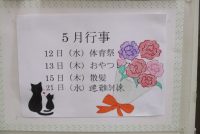 5月行事
12日（水）体育祭
13日（木）おやつ
15日（木）散髪
21日（水）避難訓練